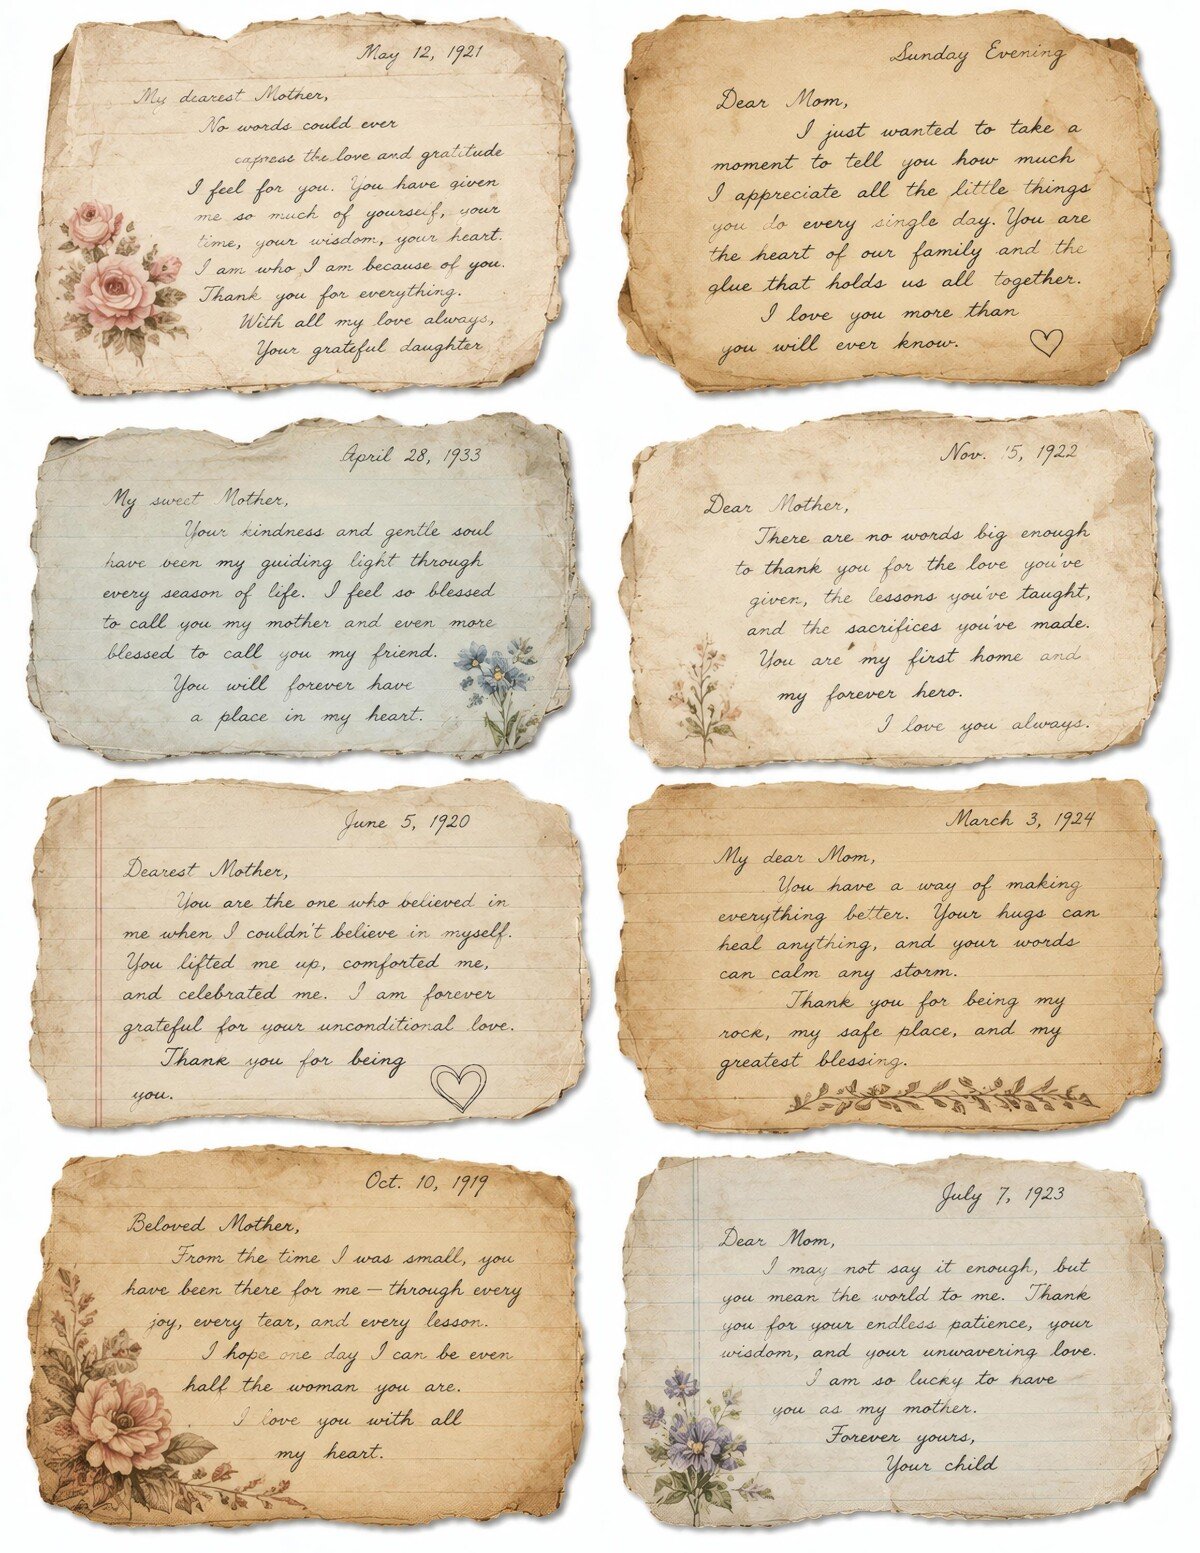 May 12, 1921
My dearest Mother,
No words could ever
express the love and gratitude
I feel for you. You have given
me so much of yourself, your
time, your wisdom, your heart.
I am who I am because of you.
Thank you for everything.
With all my love always,
Your grateful daughter
Sunday Evening
Dear Mom,
I just wanted to take a
moment to tell you how much
I appreciate all the little things
you do every single day. You are
the heart of our family and the
glue that holds us all together.
I love you more than
you will ever know.
April 28, 1933
My sweet Mother,
Your kindness and gentle soul
have been my guiding light through
every season of life. I feel so blessed
to call you my mother and even more
blessed to call you my friend.
You will forever have
a place in my heart.
Nov. 5, 1922
Dear Mother,
There are no words big enough
to thank you for the love you've
given, the lessons you've taught,
and the sacrifices you've made.
You are my first home and
my forever hero.
I love you always.
June 5, 1920
Dearest Mother,
You are the one who believed in
me when I couldn't believe in myself.
You lifted me up, comforted me,
and celebrated me. I am forever
grateful for your unconditional love.
Thank you for being
you.
March 3, 1924
My dear Mom,
You have a way of making
everything better. Your hugs can
heal anything, and your words
can calm any storm.
Thank you for being my
rock, my safe place, and my
greatest blessing.
Oct. 10, 1919
Beloved Mother,
From the time I was small, you
have been there for me — through every
joy, every tear, and every lesson.
I hope one day I can be even
half the woman you are.
I love you with all
my heart.
July 7, 1923
Dear Mom,
I may not say it enough, but
you mean the world to me. Thank
you for your endless patience, your
wisdom, and your unwavering love.
I am so lucky to have
you as my mother.
Forever yours,
Your child